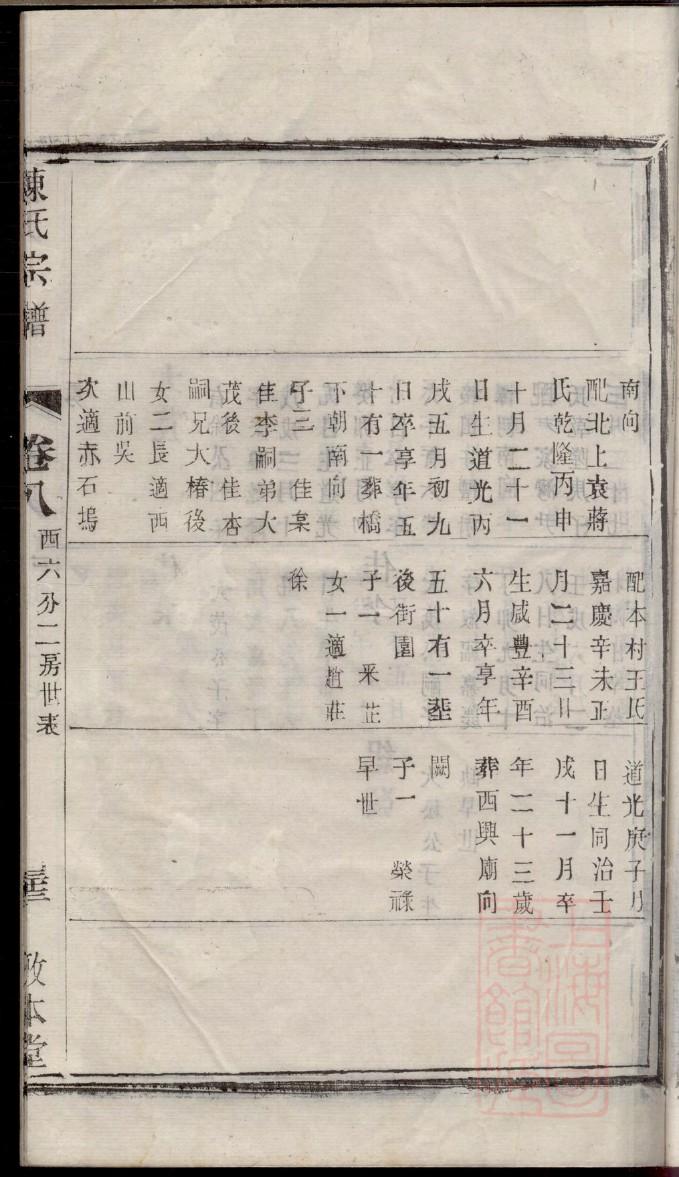 南向
配北上袁蔣
氏乾隆丙申
十月二十一
日生道光丙
戌五月初九
日卒享年五
十有一葬橋
下朝南向
子三 佳棠
佳李嗣弟大
茂後 佳杏
嗣兄大椿後
女二長適西
山前吳
次適赤石塢
配本村王氏
嘉慶辛未正
月二十三日
生咸豐辛酉
六月卒享年
五十有一葬
後街園
子一 采芷
女一適趙莊
徐
道光庚子月
日生同治壬
戌十一月卒
年二十三歲
葬西興廟向
闕
子一 榮祿
早世
陳氏宗譜
卷八
西六分二房世表
敦本堂
上海圖書館藏